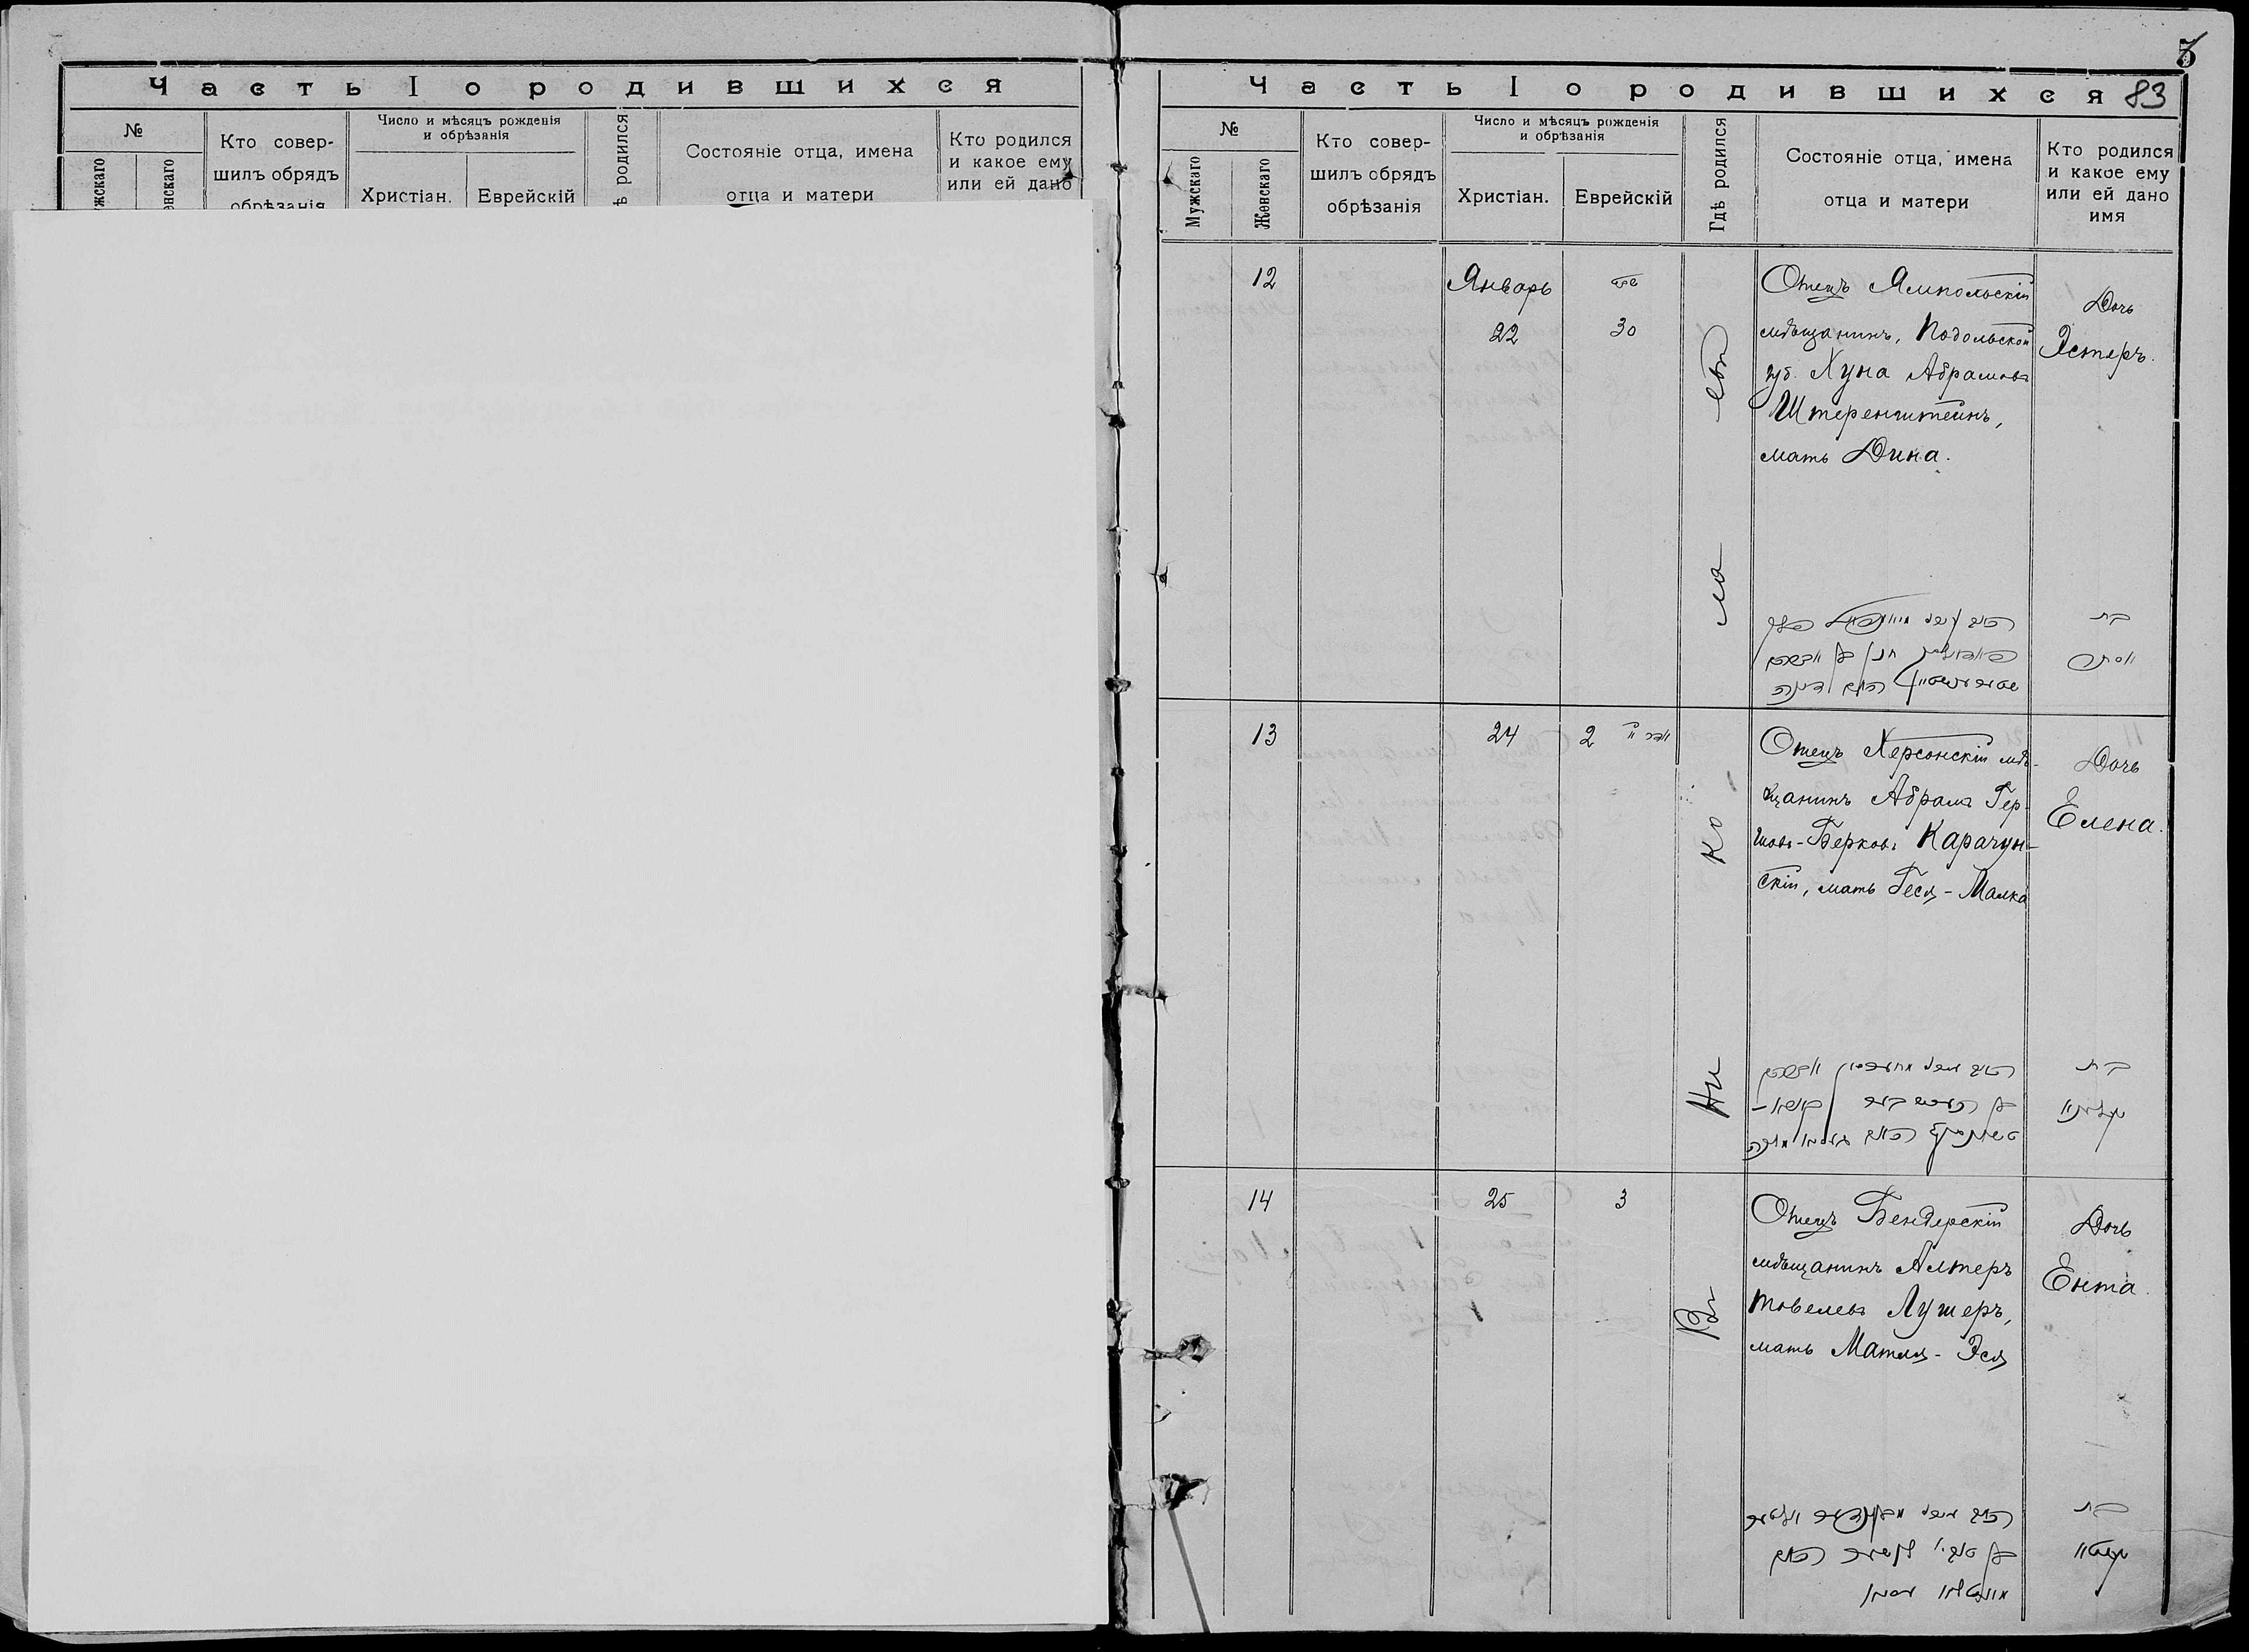 Часть I о родившихся
№
Кто совер-
шилъ обрядъ
обрѣзанія
Число и мѣсяцъ рожденія
и обрѣзанія
Христіан.
Еврейскій
родился
Состояніе отца, имена
отца и матери
Кто родился
и какое ему
или ей дано
5
Часть I о родившихся
83
№
Мужскаго
Женскаго
Кто совер-
шилъ обрядъ
обрѣзанія
Число и мѣсяцъ рожденія
и обрѣзанія
Христіан.
Еврейскій
Гдѣ родился
Состояніе отца, имена
отца и матери
Кто родился
и какое ему
или ей дано
имя
12
Январь
22
שבט
30
Отецъ Ямпольскій
мѣщанинъ, Подольской
губ. Хуна Абрамовъ
Штеренштейнъ,
мать Дина.
Дочь
Эстеръ.
בת
אסתר
13
24
2
אדר
Отецъ Херсонскій мѣ-
щанинъ Абрамъ Гер-
шовъ-Берковъ Карачун-
скій, мать Геся-Малка
Дочь
Елена.
בת
14
25
3
Отецъ Бендерскій
мѣщанинъ Алтеръ
Товелевъ Лушеръ,
мать Матля-Эся
Дочь
Ента.
בת
יענטא
Въ Ни ко ла евѣ